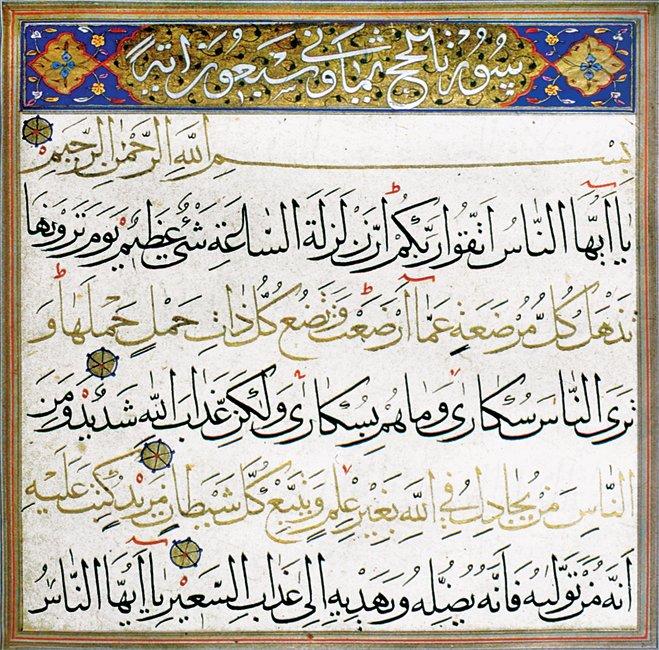 سورة الحج ثمانی و سبعون اية
بسم الله الرحمن الرحيم
يا ايها الناس اتقوا ربكم ان زلزلة الساعة شئ عظيم يوم ترونها
تذهل كل مرضعة عما ارضعت وتضع كل ذات حمل حملها و
ترى الناس سكارى وما هم بسكارى ولكن عذاب الله شديد ومن
الناس من يجادل في الله بغير علم ويتبع كل شيطان مريد كتب عليه
انه من تولیه فانه يضله ويهديه الى عذاب السعير يا ايها الناس